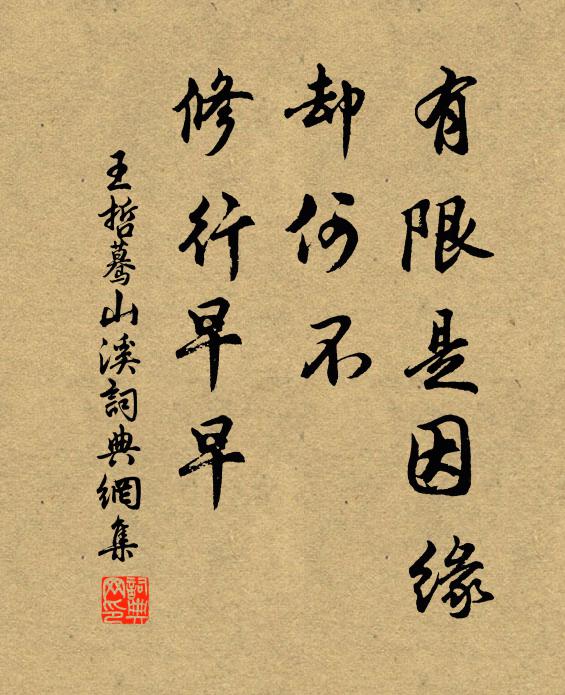 有限是因緣
却何不
修行早早
王哲蓦山溪詞典網集
詞典网印